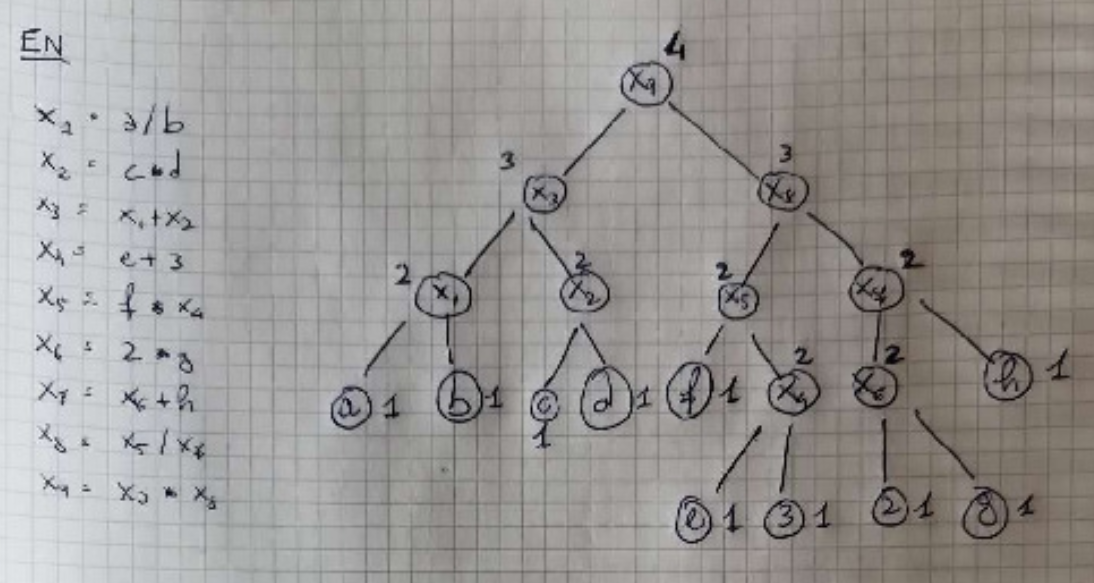 EN
x₁ = a/b
x₂ = c*d
x₃ = x₁+x₂
x₄ = e+3
x₅ = f * x₄
x₆ = 2 * g
x₇ = x₆+h
x₈ = x₅ / x₇
x₉ = x₃ * x₈
4
x₉
3 3
x₃ x₈
2 2 2 2
x₁ x₂ x₅ x₇
2 2
a 1 b 1 c d 1 f 1 x₄ x₆ h 1
1
e 1 3 1 2 1 g 1